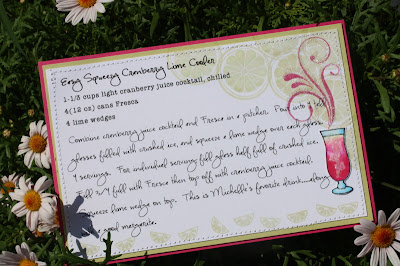 Easy Squeezy Cranberry Lime Cooler
1-1/3 cups light cranberry juice cocktail, chilled
4(12 oz) cans Fresca
4 lime wedges
Combine cranberry juice cocktail and Fresca in a pitcher. Pour into 4 tall
glasses filled with crushed ice, and squeeze a lime wedge over each glass.
4 servings. For individual serving: fill glass half full of crushed ice.
Fill 3/4 full with Fresca then top off with cranberry juice cocktail.
Squeeze lime wedge on top. This is Michelle's favorite drink....along
good margarita.